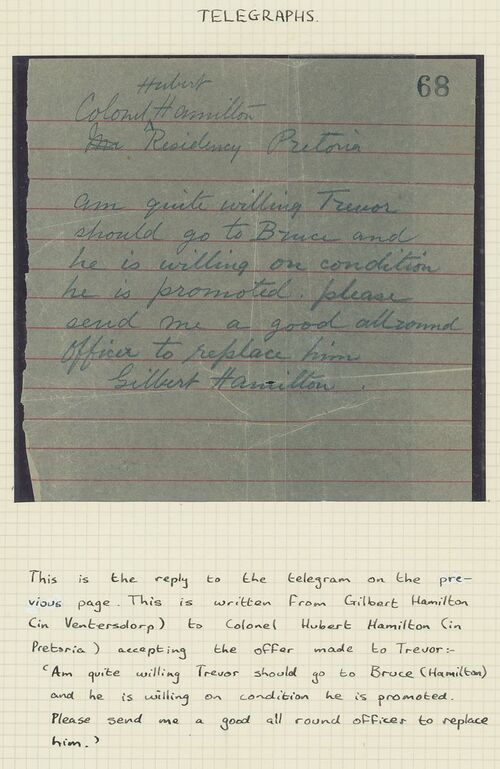 TELEGRAPHS.
68
Hubert
Colonel Hamilton
Residency Pretoria
am quite willing Trevor
should go to Bruce and
he is willing on condition
he is promoted. please
send me a good allround
Officer to replace him
Gilbert Hamilton.
This is the reply to the telegram on the pre-
vious page. This is written from Gilbert Hamilton
(in Ventersdorp) to Colonel Hubert Hamilton (in
Pretoria) accepting the offer made to Trevor:-
'Am quite willing Trevor should go to Bruce (Hamilton)
and he is willing on condition he is promoted.
Please send me a good all round officer to replace
him.'